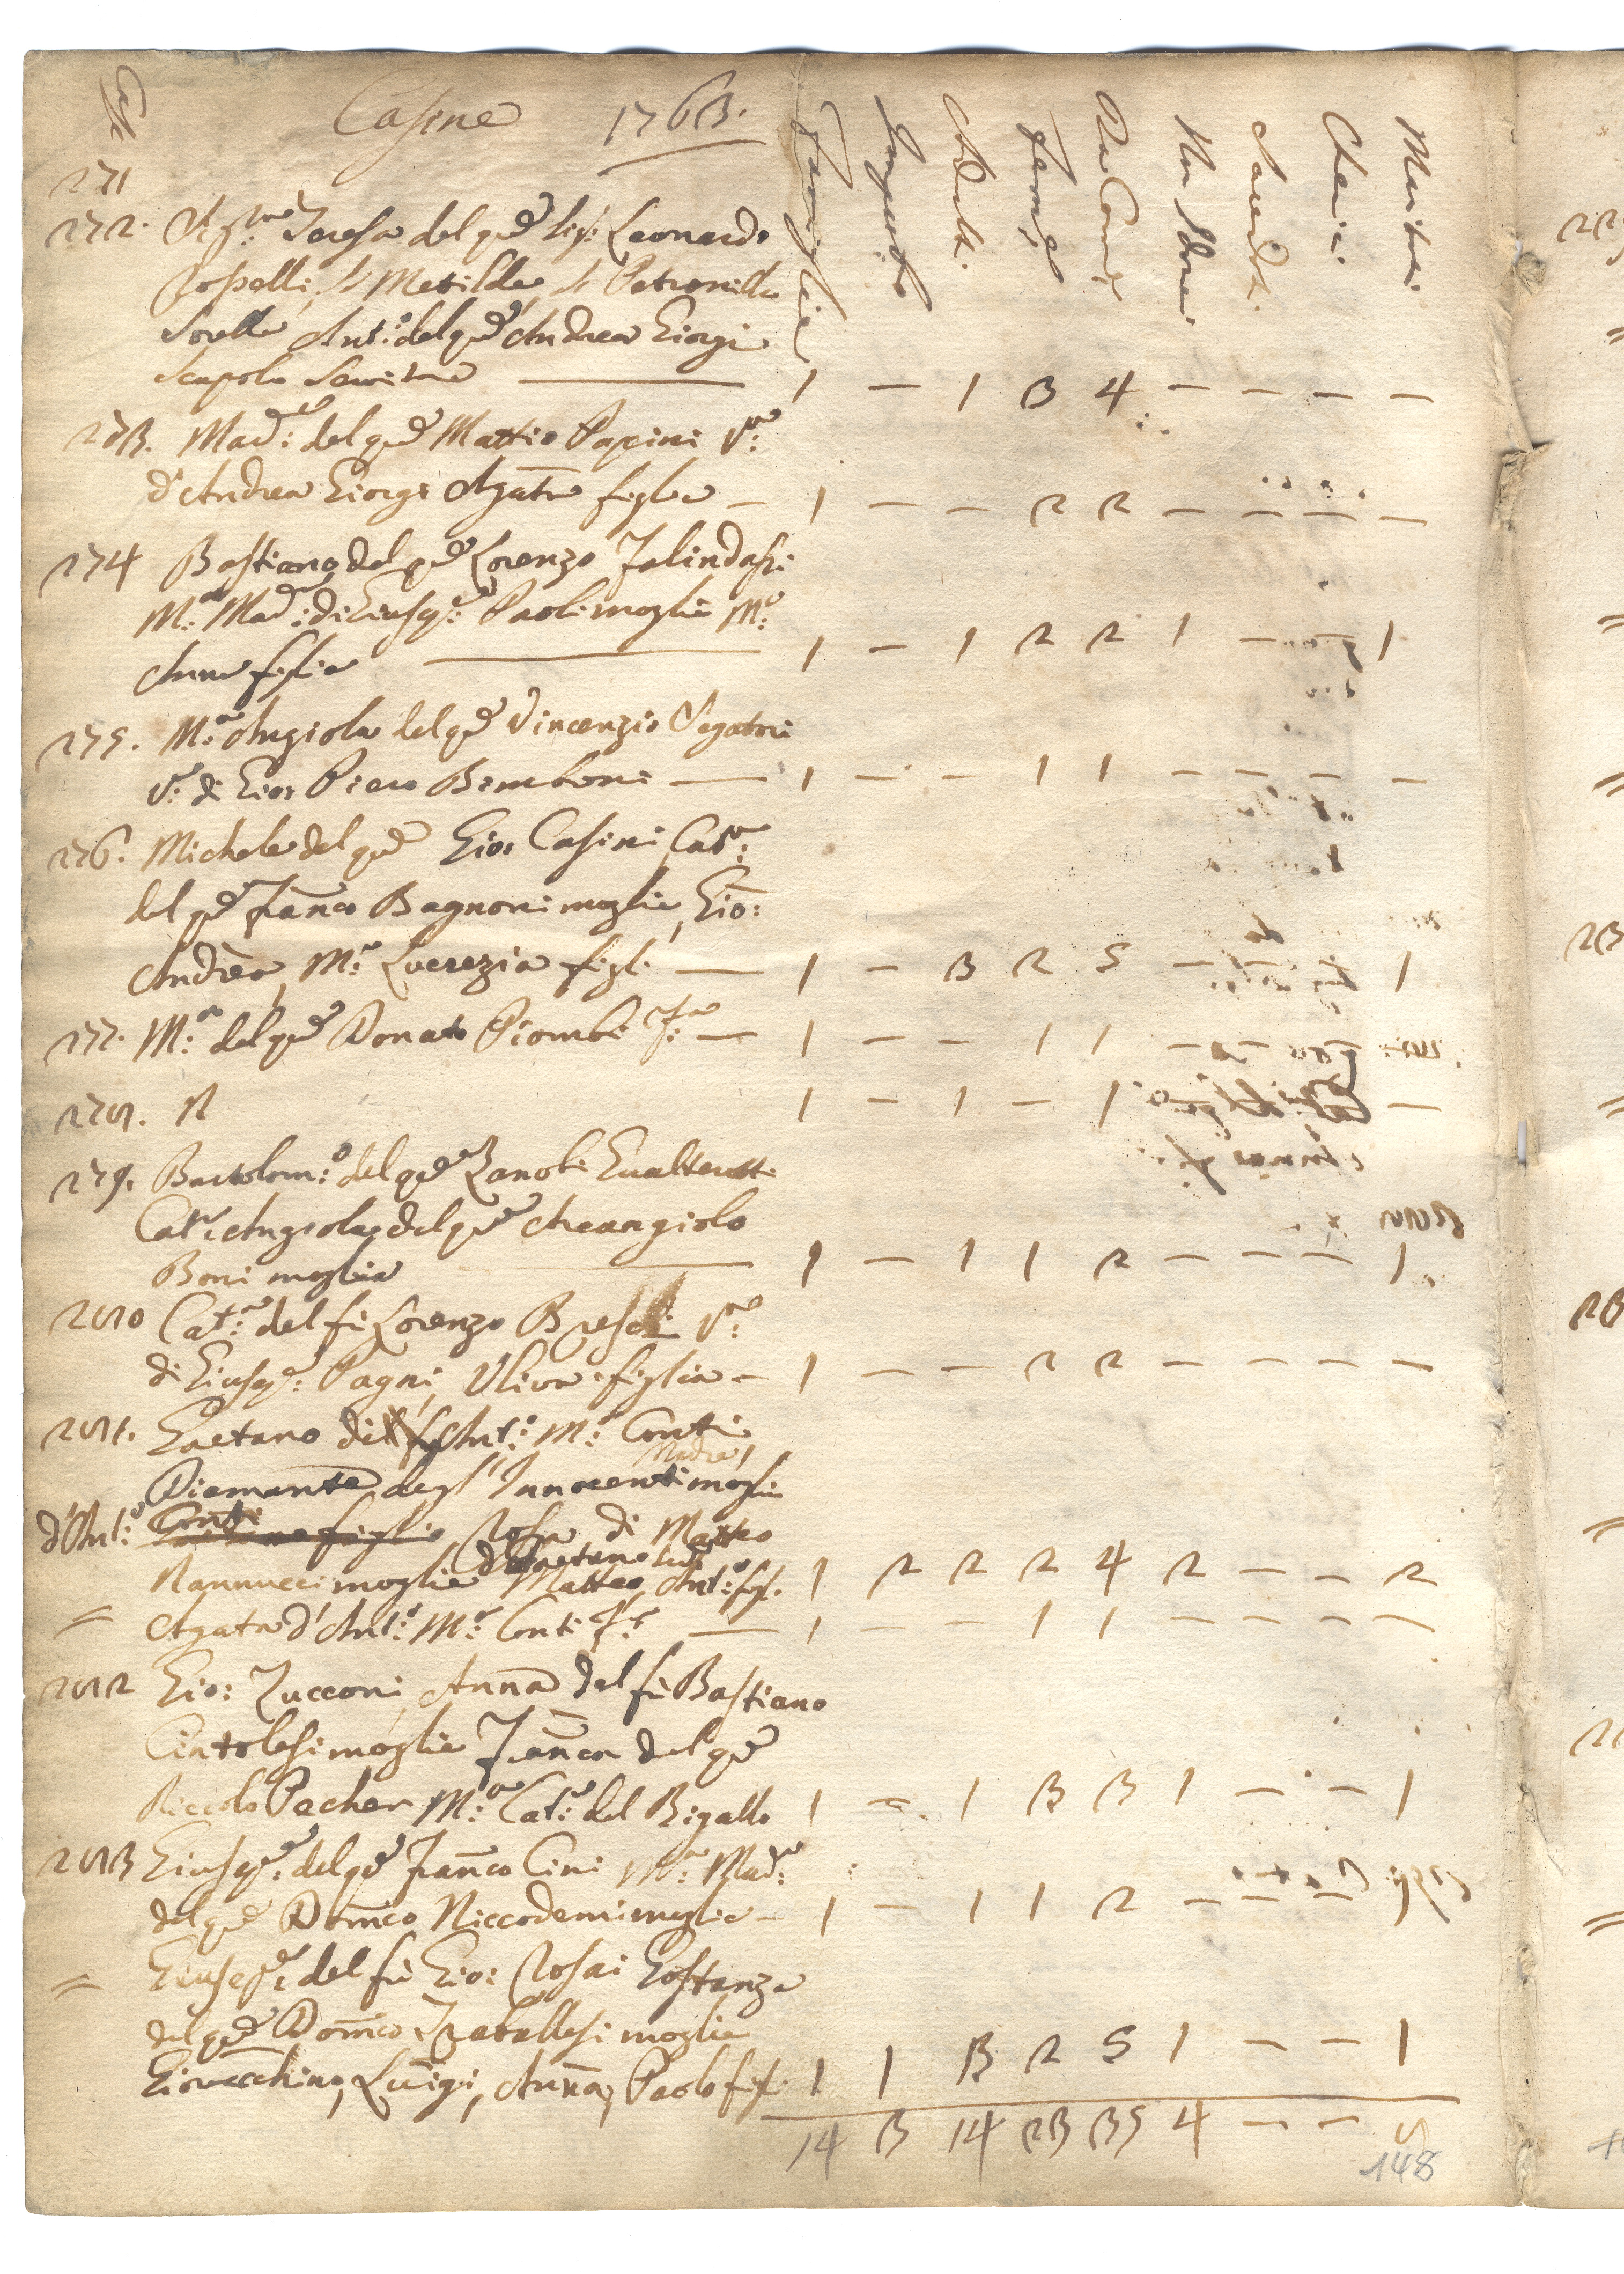 Case
Casine 1763.
Famiglie
Adulti
Femine
Da Com:
Cherici
Maritati
271
272. Sig:ra Teresa del qm Sig: Leonardo
Rosselli, Sa Metilde, Sa Petronilla
Sorelle Ant:o del qm Andrea Giorgi
Scapolo Servitore 1 — 1 3 4 — — — —
273. Mad:a del qm Mattio Papini V:a
d'Andrea Giorgi Agata figlia — 1 — — 2 2 — — — —
274 Bastiano del qm Lorenzo
M:a Mad:a di Giusep:e Paoli moglie M:a
Anna figlia 1 — 1 2 2 1 — — 1
275. M:a Angiola del qm Vincenzio Segatori
V:a di Gio: Piero Bimboni — 1 — — 1 1 — — — —
276. Michele del qm Gio: Casini, Cat:a
del qm Franco Bagnoni moglie, Gio:
Andrea, M:a Lucrezia figli — 1 — 3 2 5 — — — 1
277. M:a del qm Donato Piombi F:a — 1 — — 1 1 — — — —
278. N 1 — 1 — 1 — — — —
279. Bartolom:o del qm Zanobi Gualteretti
Cat:a Angiola del qm Arcangiolo
Boni moglie 1 — 1 1 2 — — — 1
280 Cat:a del fù Lorenzo Breschi V:a
di Giusep:e Pagni, Uliva figlia — 1 — — 2 2 — — — —
281. Gaetano di Ant:o M:a Conti
Madre
Diamante degl'Innocenti moglie
d'Ant:o Conti Rosa di Matteo
Nannucci moglie di Gaetano sud: Matteo, Ant:o figl: 1 2 2 2 4 2 — — 2
= Agata d'Ant:o M:a Conti F:a — 1 — — 1 1 — — — —
282 Gio: Zucconi, Anna del fù Bastiano
Cintolesi moglie Franca del qm
Niccolo Pecher M:a Cat:a del Bigallo 1 — 1 3 3 1 — — 1
283 Giusep:e del qm Franco Cini M:a Mad:a
del qm Domco Niccodemi moglie — 1 — 1 1 2 — — — 1
= Giusep:e del fù Gio: Rosai Gostanza
del qm Domco Fratellesi moglie
Giovacchino, Luigi, Anna, Paolo figl: 1 1 3 2 5 1 — — 1
14 3 14 23 35 4 — — 8
148